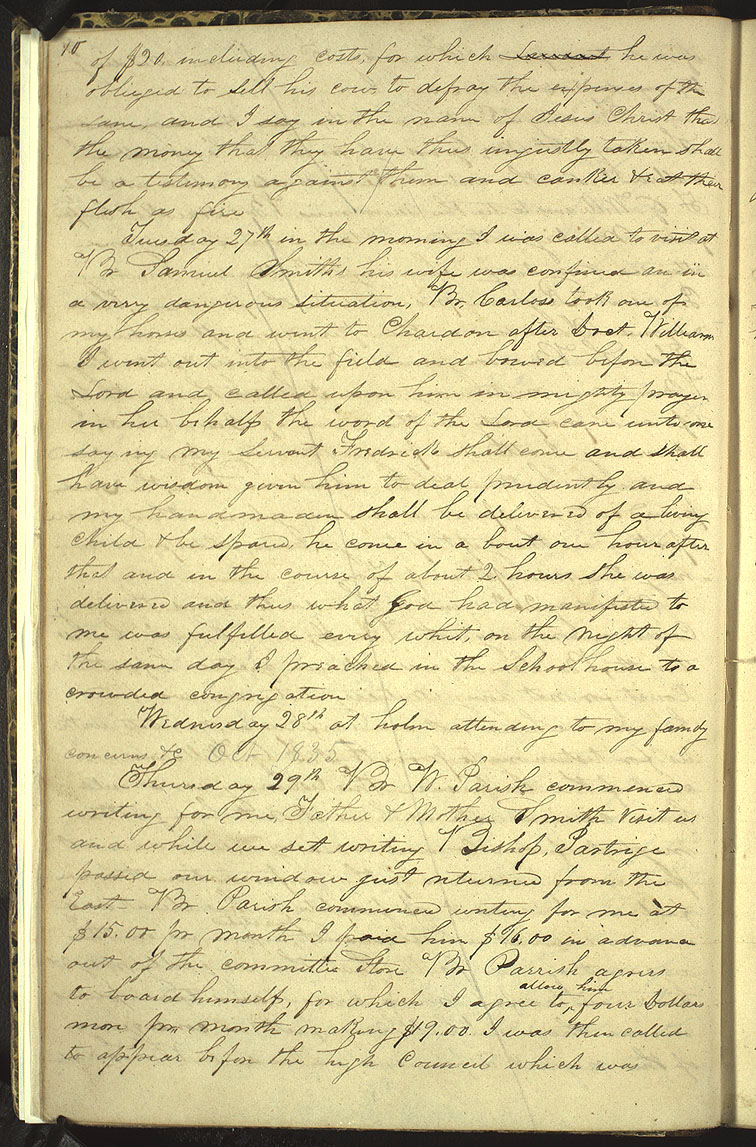 10
of $20, including costs, for which Lawsuit he was
obliged to sell his cow, to defray the expenses of the
same, and I say in the name of Jesus Christ that
the money that they have thus unjustly taken shall
be a testimony against them and canker & eat their
flesh as fire
Tuesday 27th in the morning I was called to visit at
Br Samuel Smiths his wife was confined an in
a verry dangerous situation, Br. Carloss took one of
my horses and went to Chardon after Doct. Williams
I went out into the field and bowed before the
Lord and called upon him in mighty prayer
in her behalf the word of the Lord came unto me
saying my Servant Fredrick shall come and shall
have wisdom given him to deal prudently and
my handmaden shall be delivered of a living
child & be spared, he come in a bout one hour after
that and in the course of about 2 hours she was
delivered and thus what God had manifested to
me was fulfilled every whit, on the night of
the same day I preached in the School house to a
crowded congregation
Wednesday 28th at holm attending to my family
concerns &c Oct 1835
Thursday 29th Br W. Parish commenced
writing for me, Father & Mother Smith visit us
and while we set writing Bishop, Partrige
passed our window just returned from the
East. Br Parish commenced writing for me at
$15.00 pr month I paid him $16,00 in advance
out of the committee Store Br Parrish agrees
to board himself, for which I agree to allow him four Dollars
more pr month making $19.00. I was then called
to appear before the high Council which was